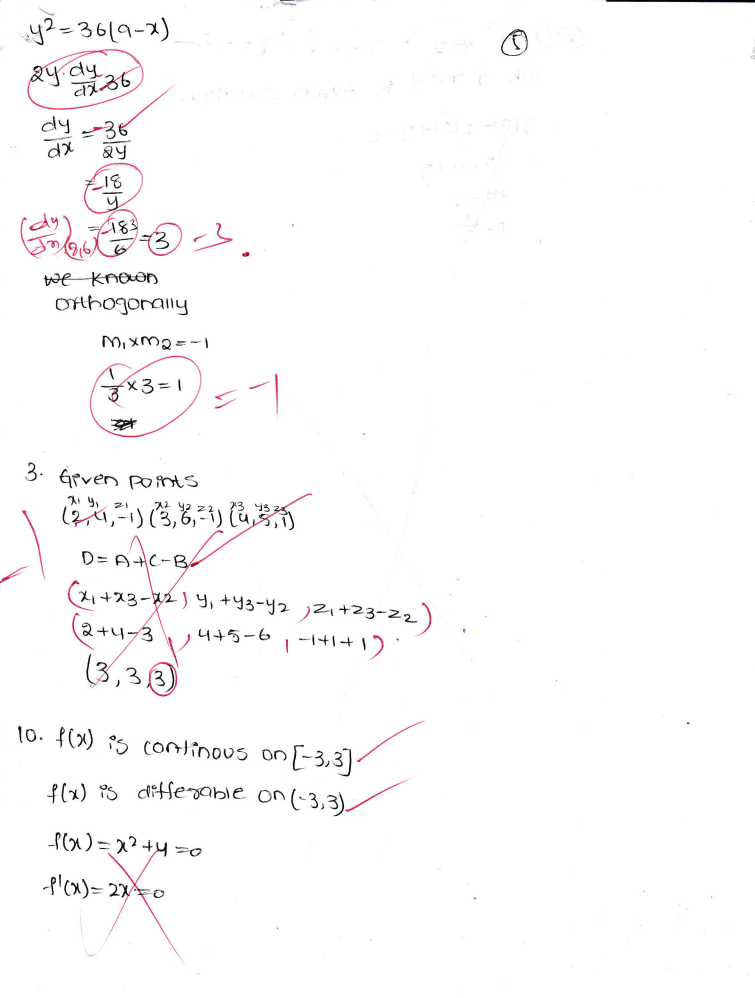 5
y² = 36(9-x)
2y·dy/dx 36
dy/dx = -36/2y
= -18/y
(dy/dx)(8,6) = -18 3/6 = 3 = -3.
we known
orthogonally
m₁×m₂=-1
1/3 × 3 = 1 = -1
3. Given points
x₁ y₁ z₁ x2 y2 z2 x3 y3 z3
(2,4,-1) (3,6,-1) (4,5,1)
-1
D = A+C-B
(x₁+x3-x2, y₁+y3-y2, z₁+z3-z₂)
(2+4-3, 4+5-6, -1+1+1)
(3,3,3)
10. f(x) is continous on [-3,3]
f(x) is differable on (-3,3)
f(x) = x²+4 =0
f'(x) = 2x =0